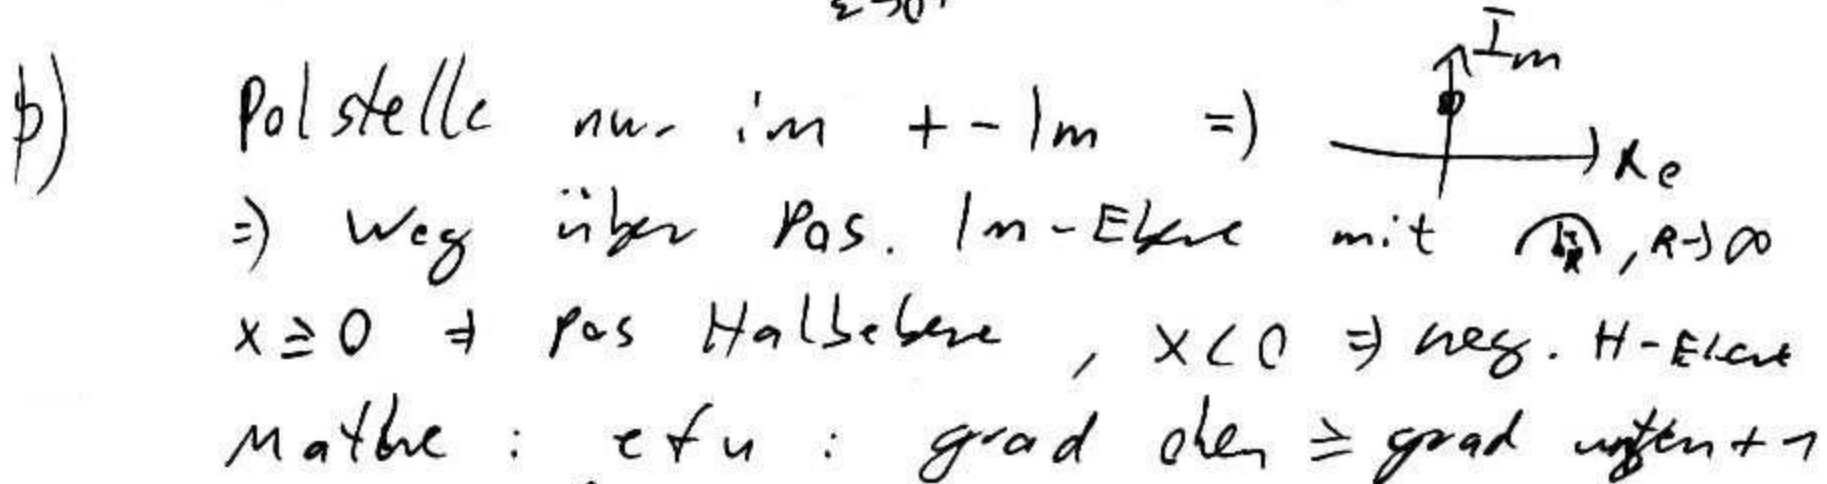 ε→0⁺
b) Polstelle nur im + - Im ⇒ Im Re
⇒ Weg über Pos. Im-Ebene mit R, R→∞
x ≥ 0 ⇒ pos Halbebene, x < 0 ⇒ neg. H-Ebene
Mathe : efu : grad oben ≥ grad unten + 1